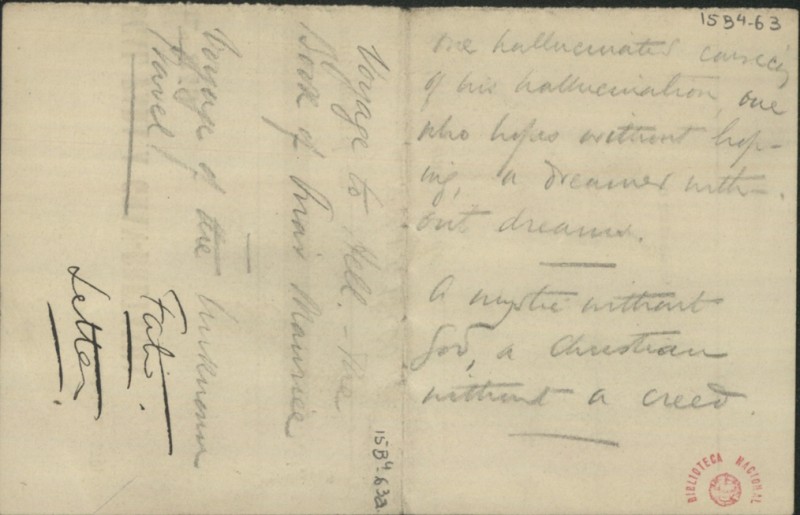 15B4-63
one hallucinated
of his hallucination, one
who hopes without hop-
ing, a dreamer with-
out dreams.
A mystic without
God, a Christian
without a creed.
Voyage to Hell. - The
Book of Maurice
Voyage of the Unknown
Travel
Letter.
15B4-63a
BIBLIOTECA NACIONAL